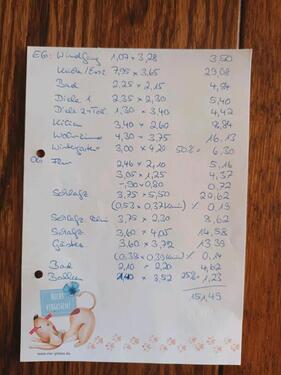 EG: Windfang 1,07 x 3,28 3,50
Küche/Essz 7,95 x 3,65 29,08
Bad 2,25 x 2,15 4,84
Diele 1 2,35 x 2,30 5,40
Diele 2 1,30 x 3,40 4,42
3,40 x 2,60 8,84
Wohnzimmer 4,30 x 3,75 16,13
Wintergarten 3,00 x 4,20 50% = 6,30
OG: 2,46 x 2,10 5,16
3,05 x 1,25 4,37
-,90 x 0,80 0,72
Schlafz 3,75 x 5,50 20,62
(0,53 x 0,37) 0,19
Schlafz 3,75 x 2,30 8,62
Schlafz 3,60 x 4,05 14,58
Gäste 3,60 x 3,72 13,39
(0,38 x 0,39) 0,14
Bad 2,10 x 2,20 4,62
Balkon 1,40 x 3,52 25% 1,23
151,49
NICHT
VERGESSEN!